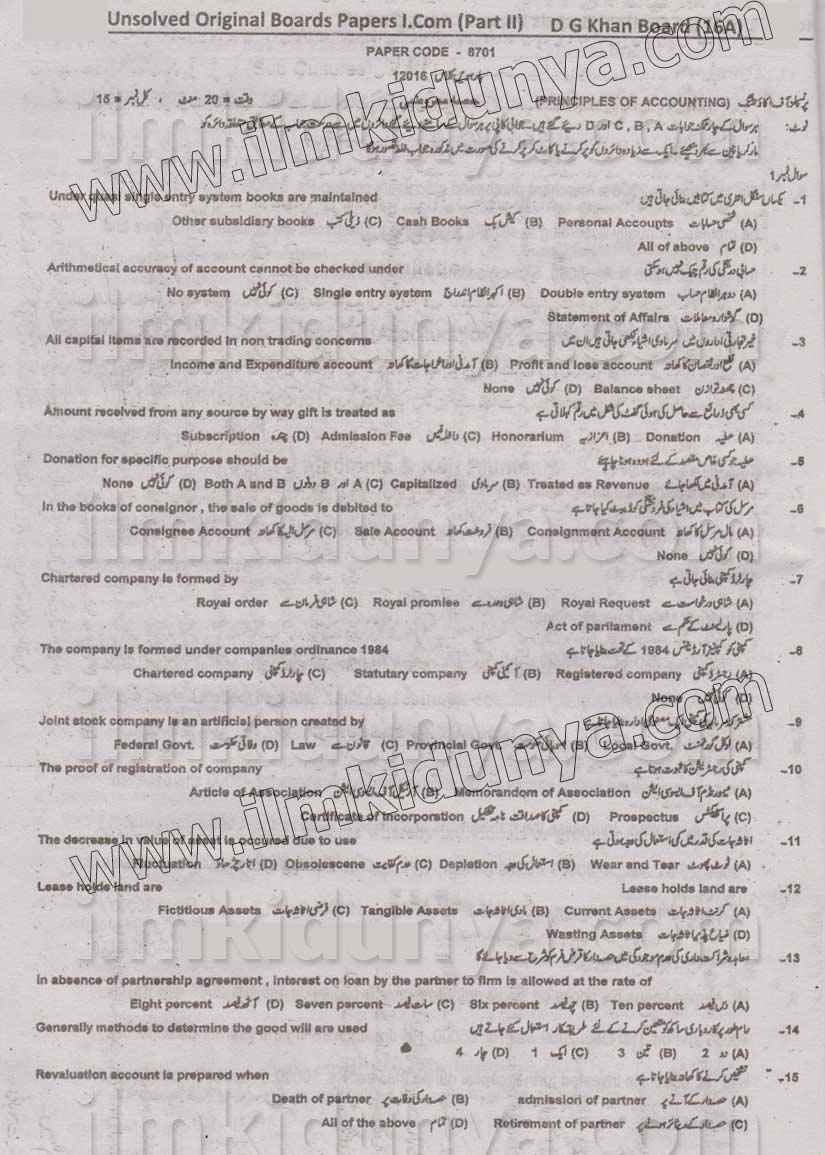 Unsolved Original Boards Papers I.Com (Part II) D G Khan Board (16A)
PAPER CODE - 8701
12016
(PRINCIPLES OF ACCOUNTING) وقت = 20 منٹ ، کل نمبر = 15
سوال نمبر 1
Under quasi single entry system books are maintained یکساں سنگل انٹری میں کتابیں بنائی جاتی ہیں -1
Other subsidiary books ذیلی کتب (C) Cash Books کیش بک (B) Personal Accounts شخصی حسابات (A)
All of above تمام (D)
Arithmetical accuracy of account cannot be checked under حسابی درستگی کی رقم چیک نہیں ہوسکتی -2
No system کوئی نہیں (C) Single entry system اکہرا نظام اندراج (B) Double entry system دوہرا نظام حساب (A)
Statement of Affairs گوشوارہ معاملات (D)
All capital items are recorded in non trading concerns غیر تجارتی اداروں میں سرمادی اشیاء لکھی جاتی ہیں ان میں -3
Income and Expenditure account آمدنی اور اخراجات کا کھاتہ (B) Profit and loss account نفع اور نقصان کا کھاتہ (A)
None کوئی نہیں (D) Balance sheet (C)
Amount received from any source by way gift is treated as کسی بھی ذرائع سے حاصل کی ہوئی گفٹ کی شکل میں رقم کہلاتی ہے -4
Subscription چندہ (D) Admission Fee داخلہ فیس (C) Honorarium اعزازیہ (B) Donation عطیہ (A)
Donation for specific purpose should be عطیہ جو کسی خاص مقصد کے لئے ہو وہ ہونا چاہیے -5
None کوئی نہیں (D) Both A and B دونوں B اور A (C) Capitalized سرمادی (B) Treated as Revenue آمدنی میں لکھا جائے (A)
In the books of consignor , the sale of goods is debited to -6
Consignee Account مرسل الیہ کا کھاتہ (C) Sale Account فروخت کھاتہ (B) Consignment Account مال مرسل کا کھاتہ (A)
None کوئی نہیں (D)
Chartered company is formed by چارٹرڈ کمپنی بنائی جاتی ہے -7
Royal order شاہی فرمان سے (C) Royal promise شاہی وعدہ سے (B) Royal Request شاہی درخواست سے (A)
Act of parliament پارلیمنٹ کے حکم سے (D)
The company is formed under companies ordinance 1984 کمپنی کو کمپنیز آرڈیننس 1984 کے تحت بنایا جاتا ہے -8
Chartered company چارٹرڈ کمپنی (C) Statutary company آئینی کمپنی (B) Registered company رجسٹرڈ کمپنی (A)
None کوئی نہیں (D)
Joint stock company is an artificial person created by -9
Federal Govt. وفاقی حکومت (D) Law قانون سے (C) Provincial Govt. صوبائی حکومت (B) Local Govt. لوکل گورنمنٹ (A)
The proof of registration of company کمپنی کی رجسٹریشن کا ثبوت ہوتا ہے -10
Article of Association آرٹیکل آف ایسوسی ایشن (B) Memorandum of Association میمورنڈم آف ایسوسی ایشن (A)
Certificate of incorporation (D) Prospectus پراسپیکٹس (C)
The decrease in value of asset is occured due to use اثاثہ جات کی قدر میں کمی استعمال کی وجہ ہوتی ہے -11
Fluctuation (D) Obsolescene عدم کفایت (C) Depletion استعمال کی وجہ (B) Wear and Tear ٹوٹ پھوٹ (A)
Lease holds land are Lease holds land are -12
Fictitious Assets فرضی اثاثہ جات (C) Tangible Assets مادی اثاثہ جات (B) Current Assets کرنٹ اثاثہ جات (A)
Wasting Assets ضیاع پذیر اثاثہ جات (D)
معاہدہ شراکت داری کی عدم موجودگی میں حصہ دار کا قرض فرم کو شرح سے دیا جائے گا -13
In absence of partnership agreement , interest on loan by the partner to firm is allowed at the rate of
Eight percent آٹھ فیصد (D) Seven percent سات فیصد (C) Six percent چھ فیصد (B) Ten percent دس فیصد (A)
Generally methods to determine the good will are used عام طور پر کاروباری ساکھ کو متعین کرنے کے لئے طریقہ کار استعمال کئے جاتے ہیں -14
4 چار (D) 1 ایک (C) 3 تین (B) 2 دو (A)
Revaluation account is prepared when تشخیص کرنے کا کھاتہ بنایا جاتا ہے -15
Death of partner حصہ دار کی وفات پر (B) admission of partner حصہ دار کے آنے پر (A)
All of the above تمام (D) Retirement of partner حصہ دار کے ریٹائر ہونے پر (C)
www.ilmkidunya.com
www.ilmkidunya.com
ilmkidunya.com